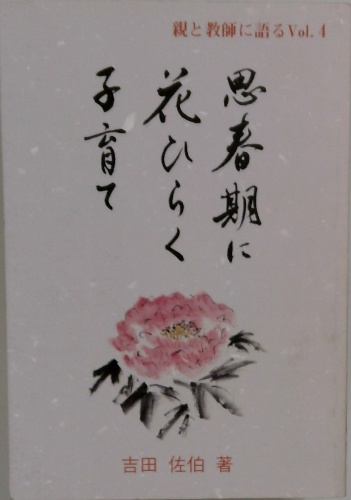 親と教師に語るVol.4
思春期に
花ひらく
子育て
吉田 佐伯 著